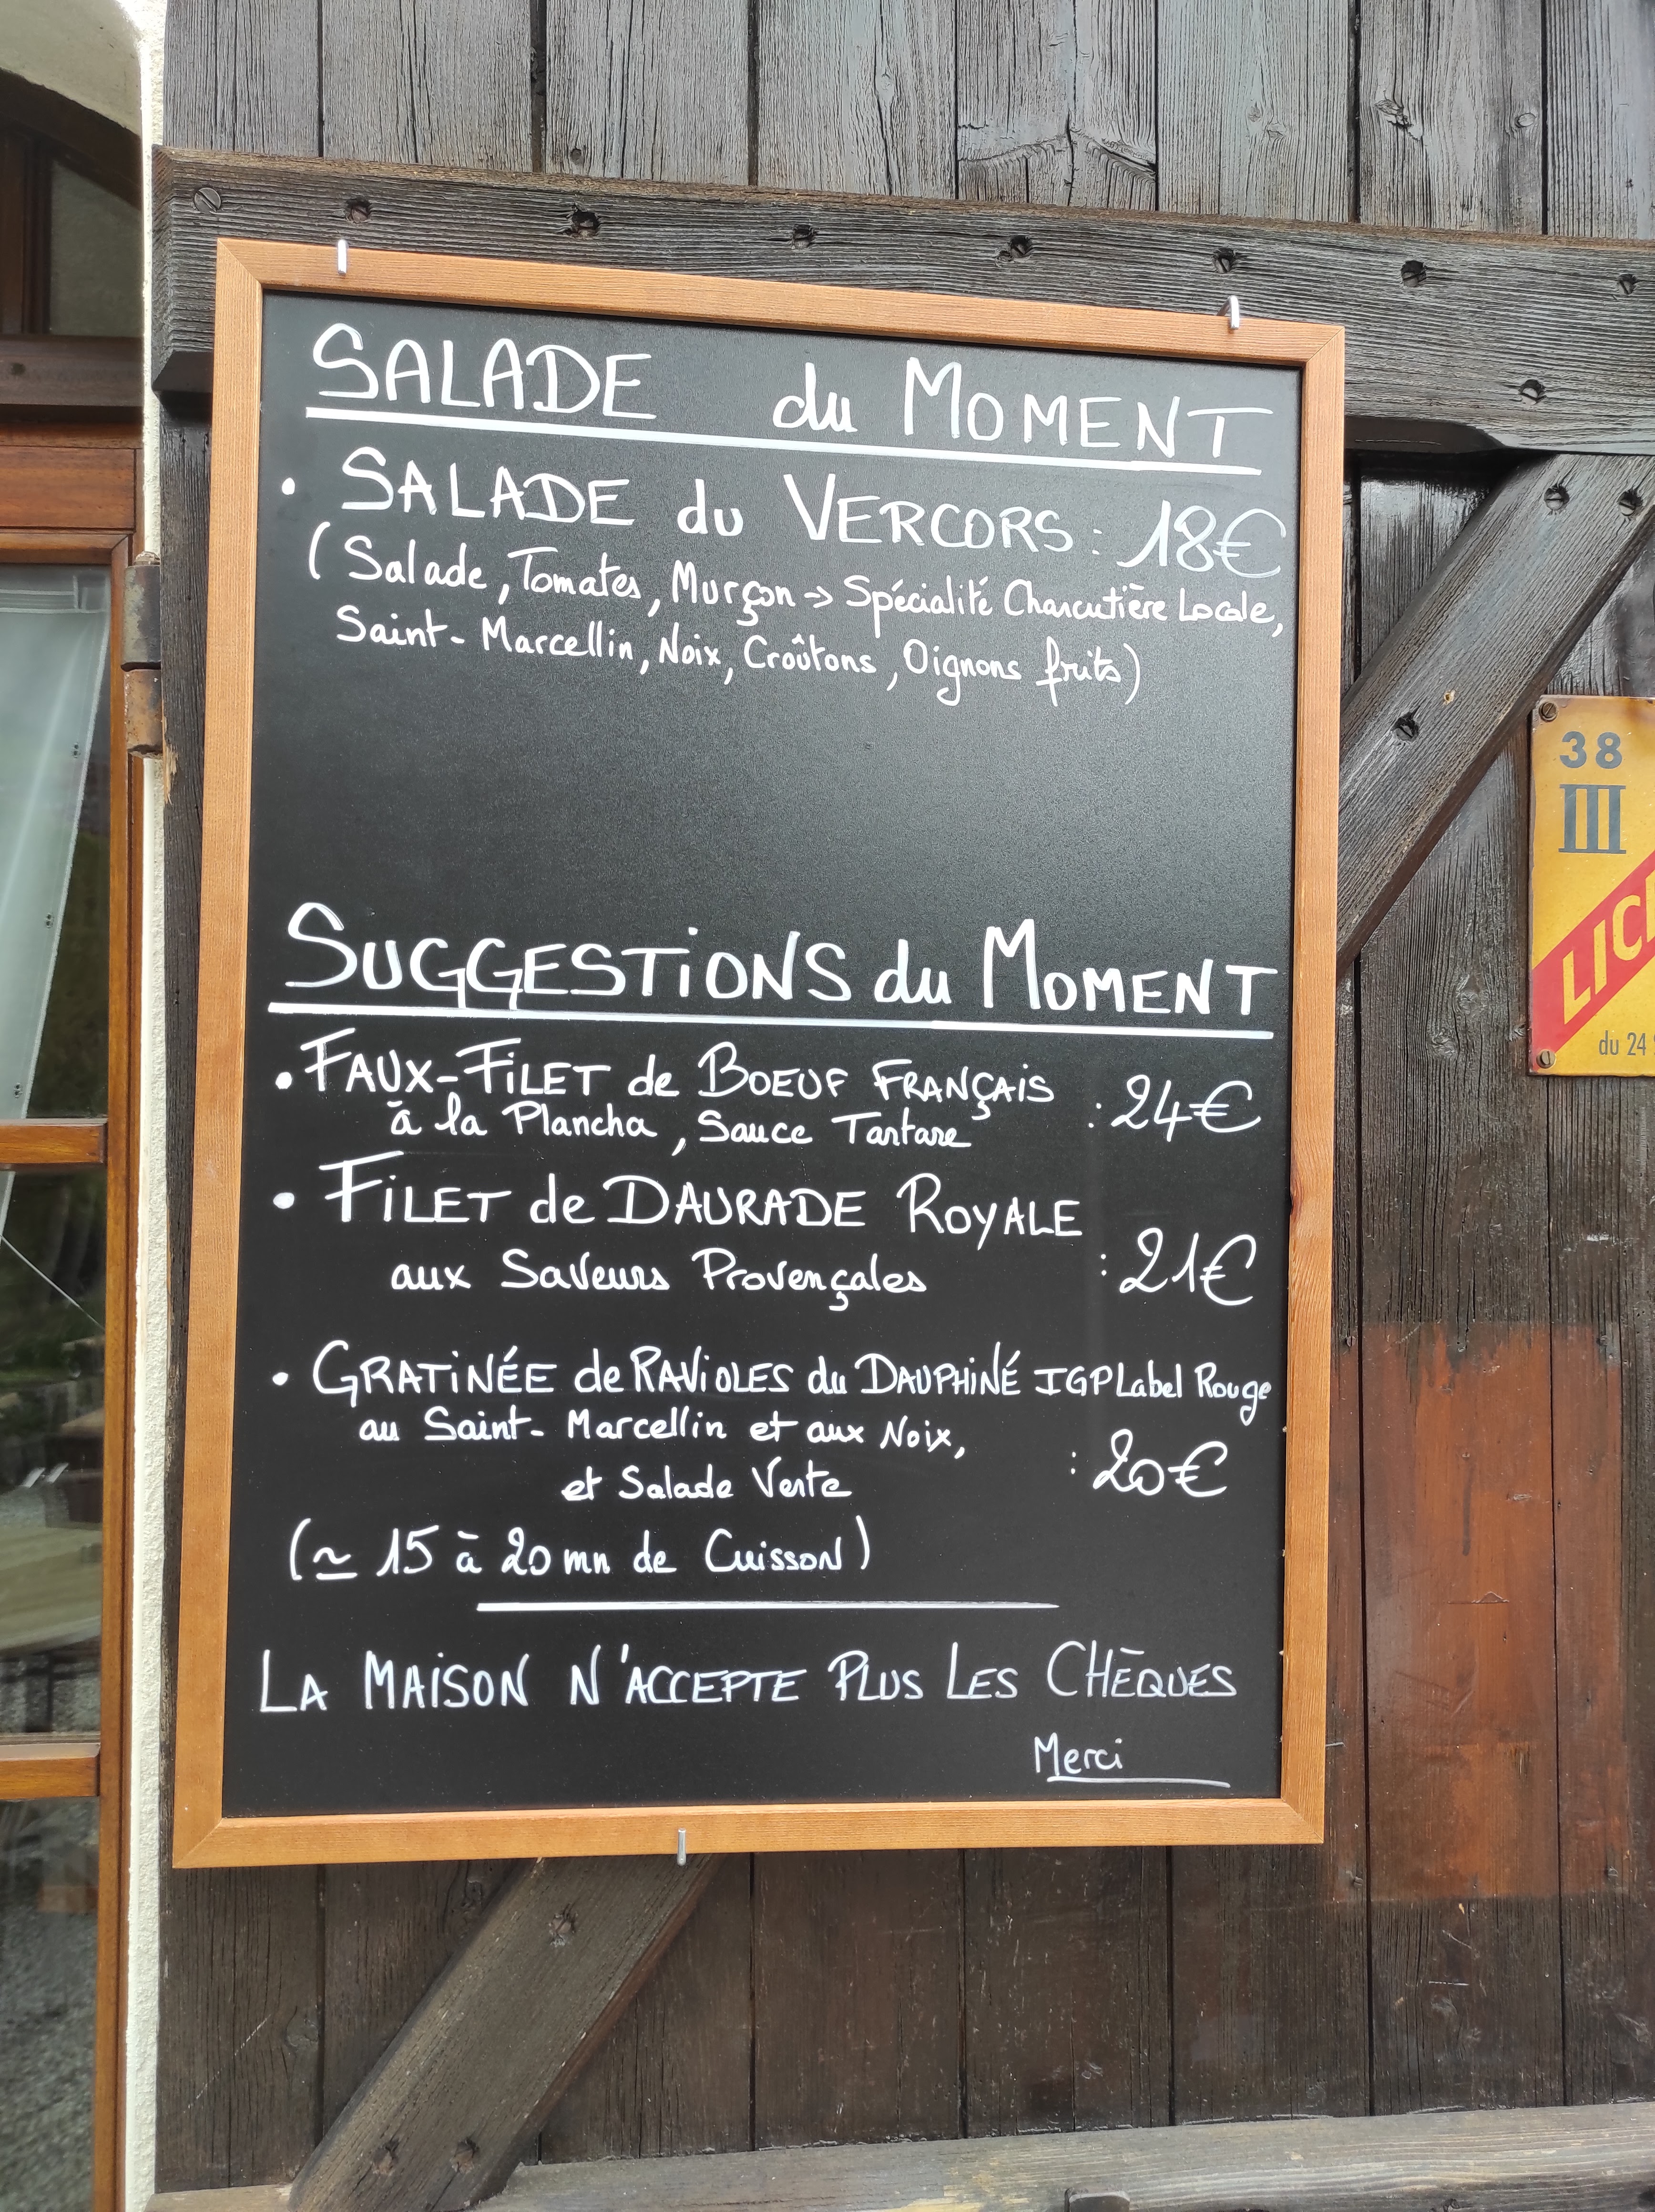 SALADE du MOMENT
• SALADE du VERCORS : 18€
(Salade, Tomates, Murçon → Spécialité Charcutière Locale,
Saint-Marcellin, Noix, Croûtons, Oignons frits)
SUGGESTIONS du MOMENT
• FAUX-FILET de BOEUF FRANÇAIS
à la Plancha, Sauce Tartare : 24€
• FILET de DAURADE ROYALE
aux Saveurs Provençales : 21€
• GRATINÉE de RAVIOLES du DAUPHINÉ IGP Label Rouge
au Saint-Marcellin et aux Noix,
et Salade Verte : 20€
(≃ 15 à 20 mn de Cuisson)
LA MAISON N'ACCEPTE PLUS LES CHÈQUES
Merci
38
III
LIC
du 24